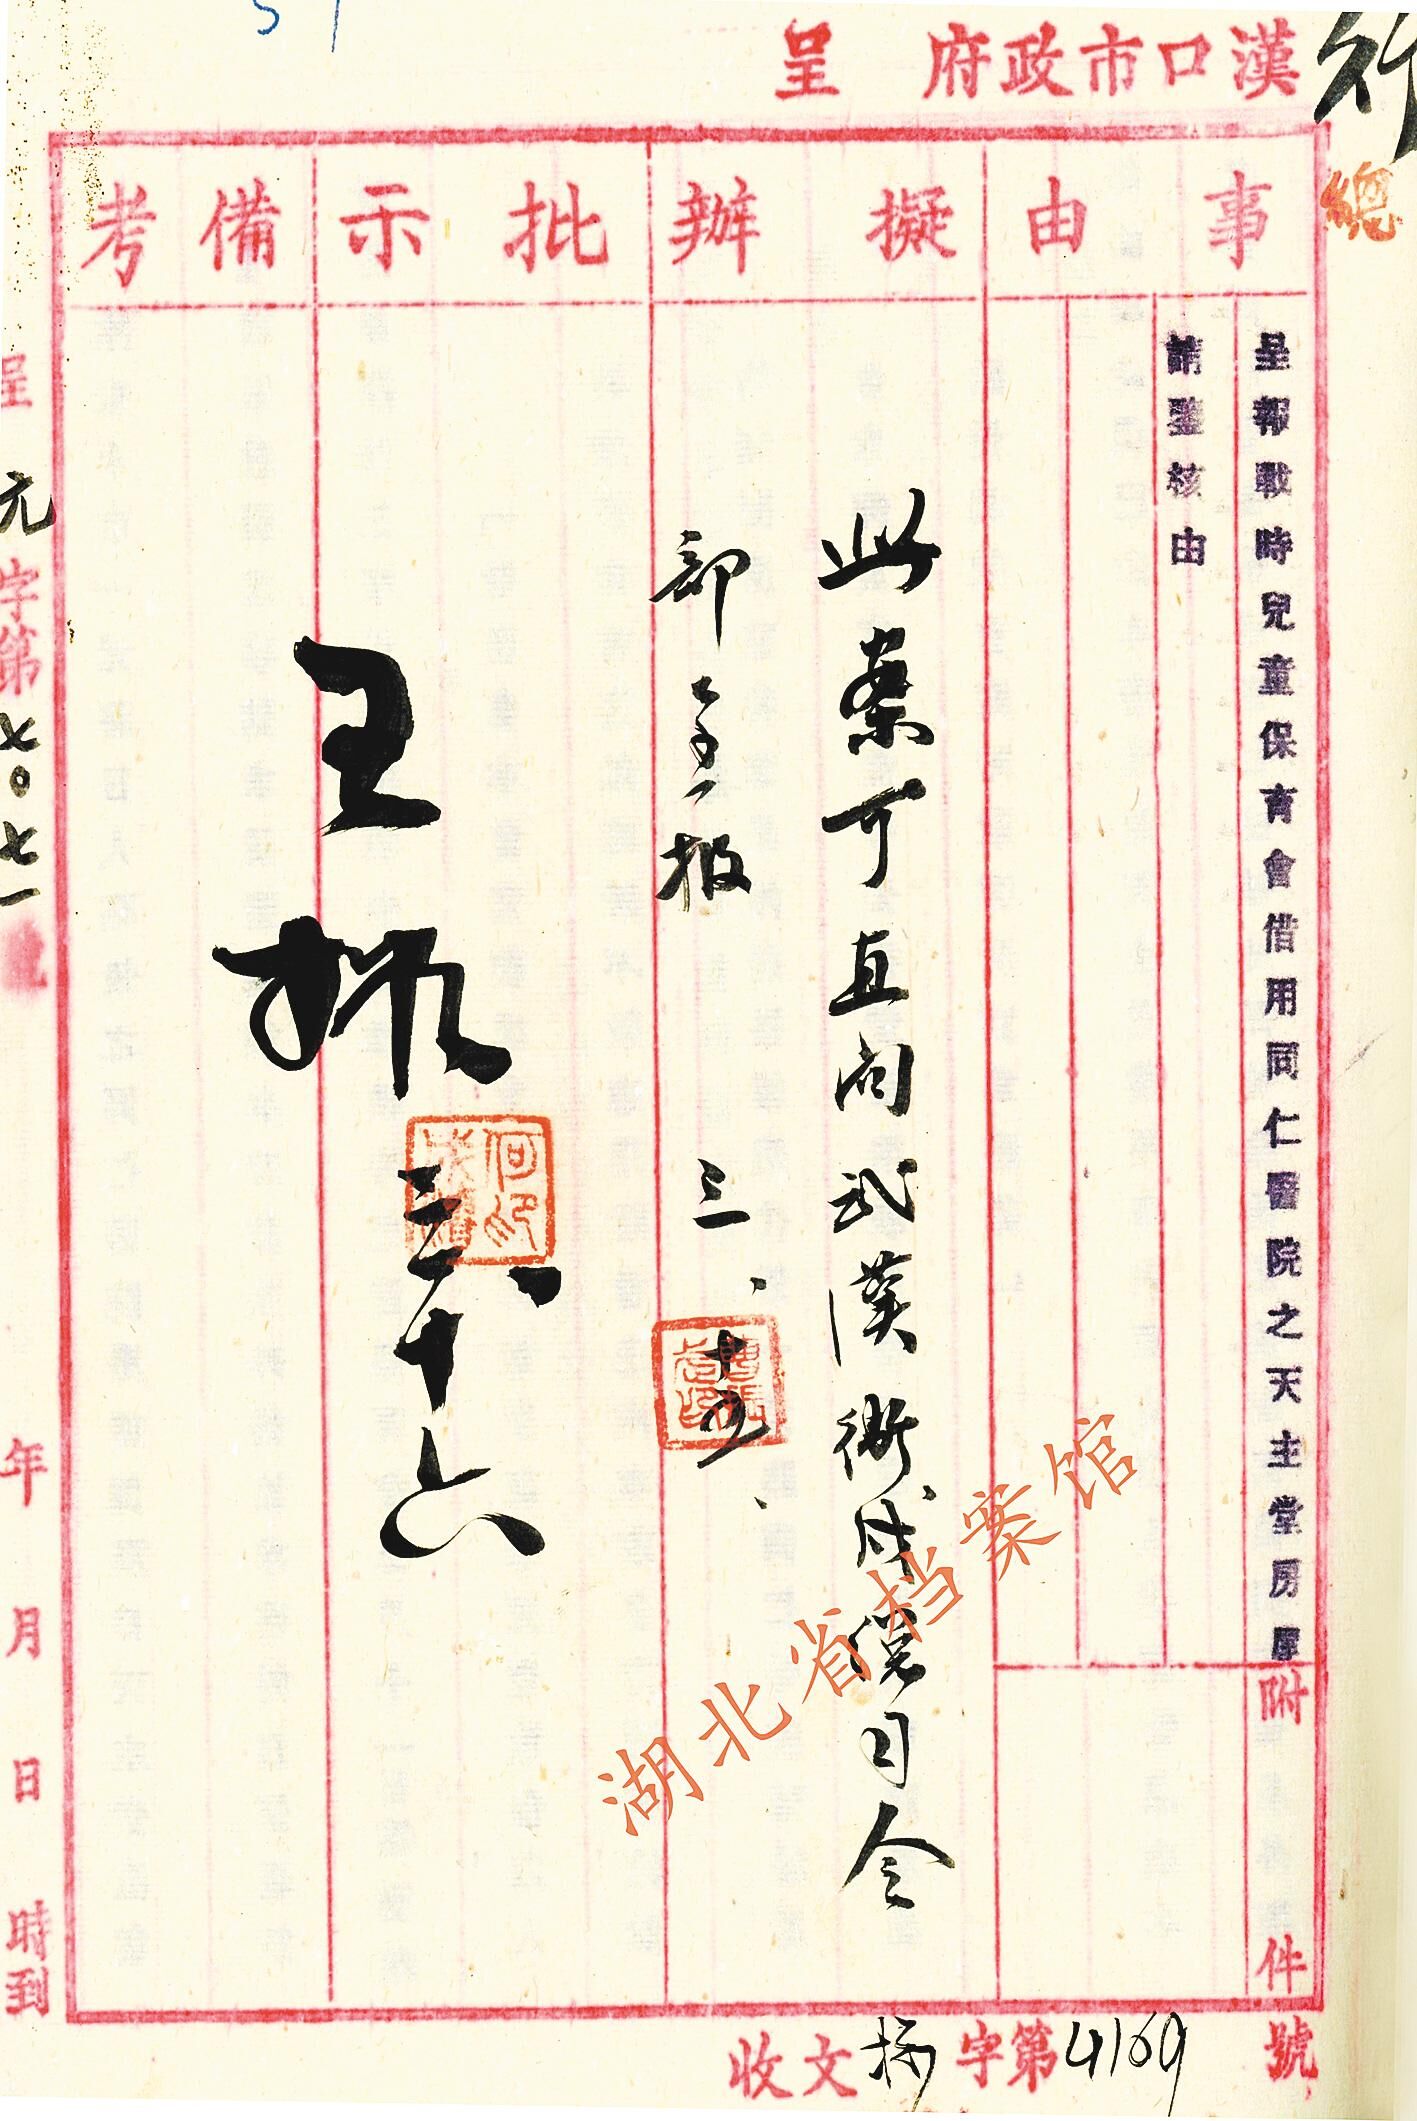 漢口市政府 呈
事由
擬辦
批示
備考
呈報戰時兒童保育會借用同仁醫院之天主堂房屋
請鑒核由
附件
此案可直向武漢衛戍總司令
部呈報
三、十五、
三、十六
呈 元字第七〇七一號
年 月 日 時到
收文 字第4169號
總
湖北省档案馆